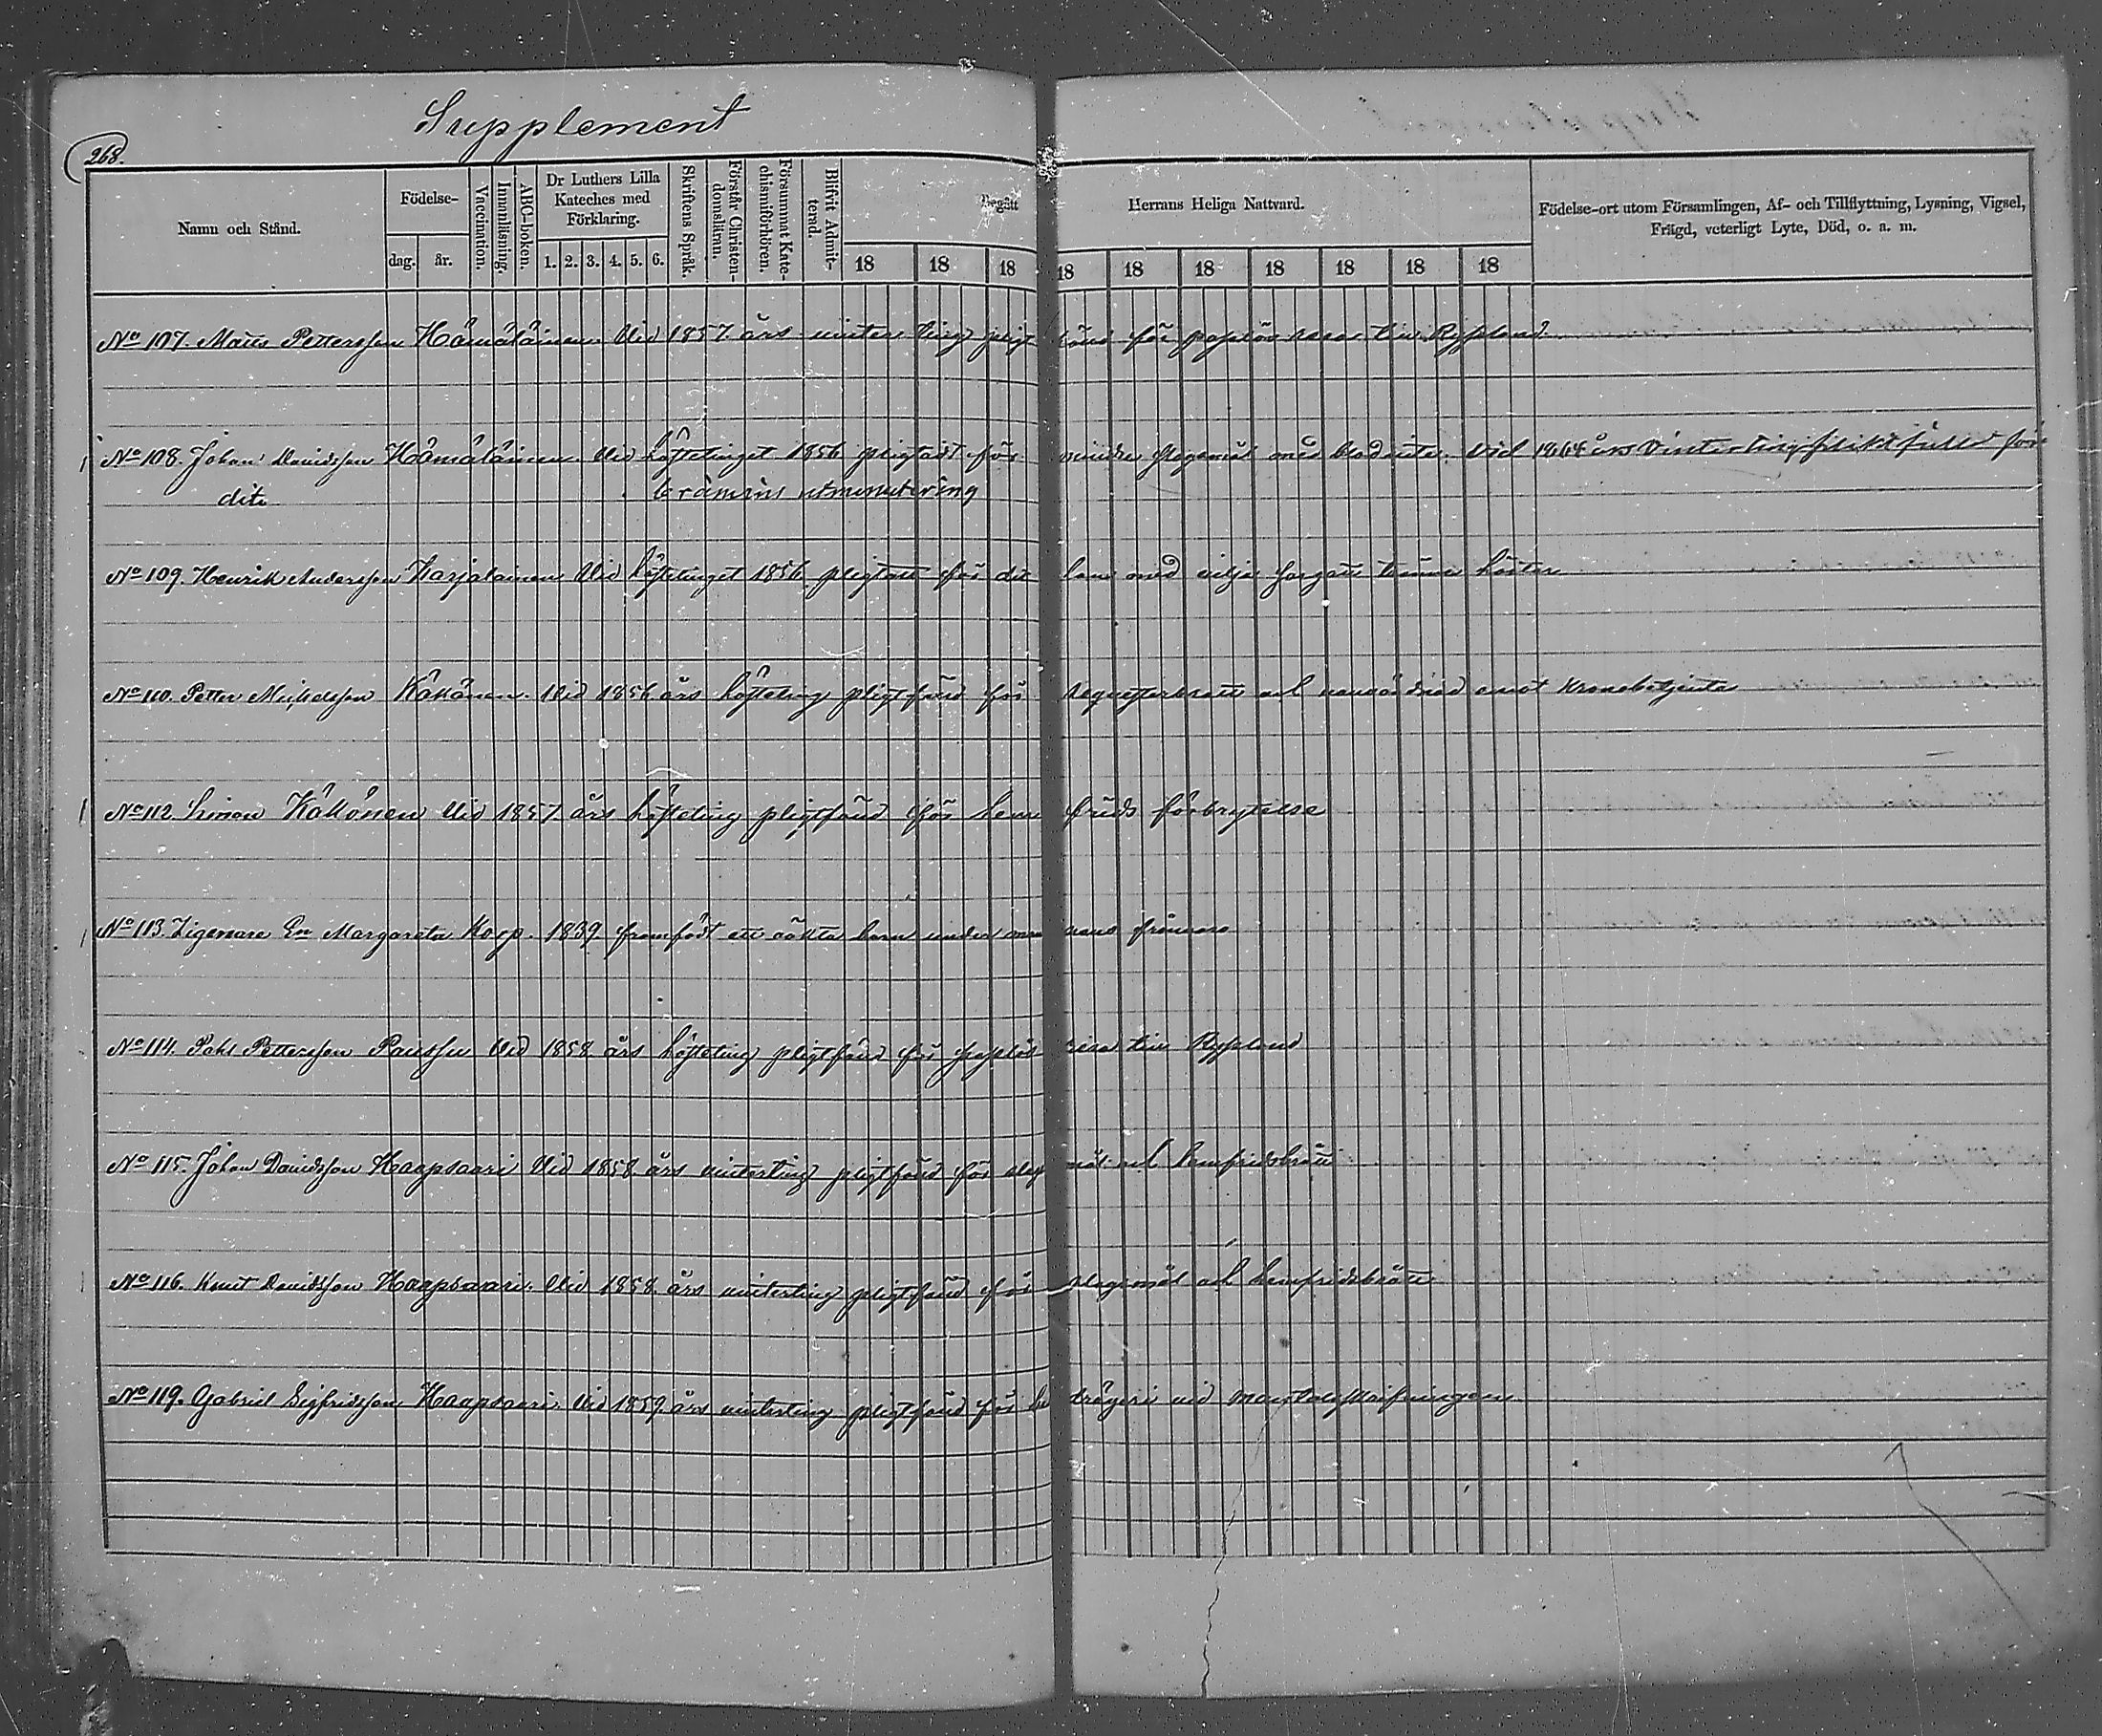 Supplement
268.
Namn och Stånd.
Födelse-
dag.
år.
Vaccination.
Innanläsning.
ABC-boken.
Dr Luthers Lilla
Kateches med
Förklaring.
1. 2. 3. 4. 5. 6.
Skriftens Språk.
Förstår Christen-
domsläran.
Försummat Kate-
chismiförhören.
Blifvit Admit-
terad.
Begått Herrans Heliga Nattvard.
18 18 18 18 18 18 18 18 18 18
Födelse-ort utom Församlingen, Af- och Tillflyttning, Lysning, Vigsel,
Frägd, veterligt Lyte, Död, o. a. m.
No 107. Matts Pettersson Hämäläinen Vid 1857 års vinterting pligtfäld för passlös resa till Ryssland
No 108. Johan Davidsson Hämäläinen Vid hösttinget 1856 pligtat för mindre slagsmål med blodvite. Vid 1864 års Vinterting pliktfälld för
dito utminutering
No 109. Henrik Andersson Karjalainen Vid hösttinget 1856 pligtat för det han med vilja tvenne hästar
No 110. Petter Michelsson Käkönen. Vid 1856 års hösteting pligtfäld för och emot Kronobetjente
No 112. Simon Käkönen Vid 1857 års hösteting pligtfäld för hemfrids förbrytelse
No 113. Zigenare En Margareta Koop. 1839 framfödt ett oäkta barn under mannens frånvaro
No 114. Påhl Pettersson Paussu Vid 1858 års hösteting pligtfäld för passlös resa till Ryssland
No 115. Johan Davidsson Haapsaari Vid 1858 års vinterting pligtfäld för slagsmål och hemfridsbrott
No 116. Knut Davidsson Haapsaari. Vid 1858 års vinterting pligtfäld för slagsmål och hemfridsbrott
No 119. Gabriel Sigfridsson Haapsaari. Vid 1859 års vinterting pligtfäld för bedrägeri vid mantalsskrifningen